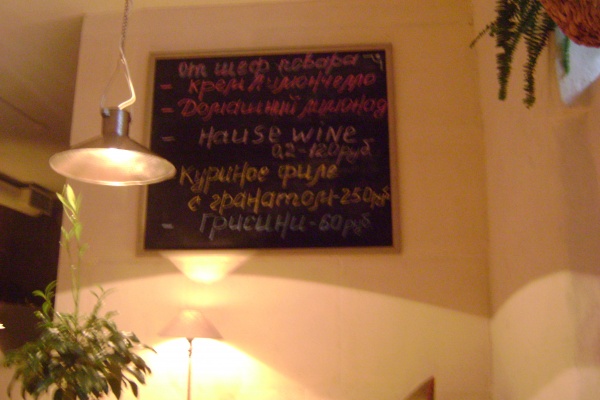 от шеф повара
- крем Лимончелло
- Домашний лимонад
- Hause wine
0,2-120руб
Куриное филе
с гранатом-250руб
- Грисини-60руб